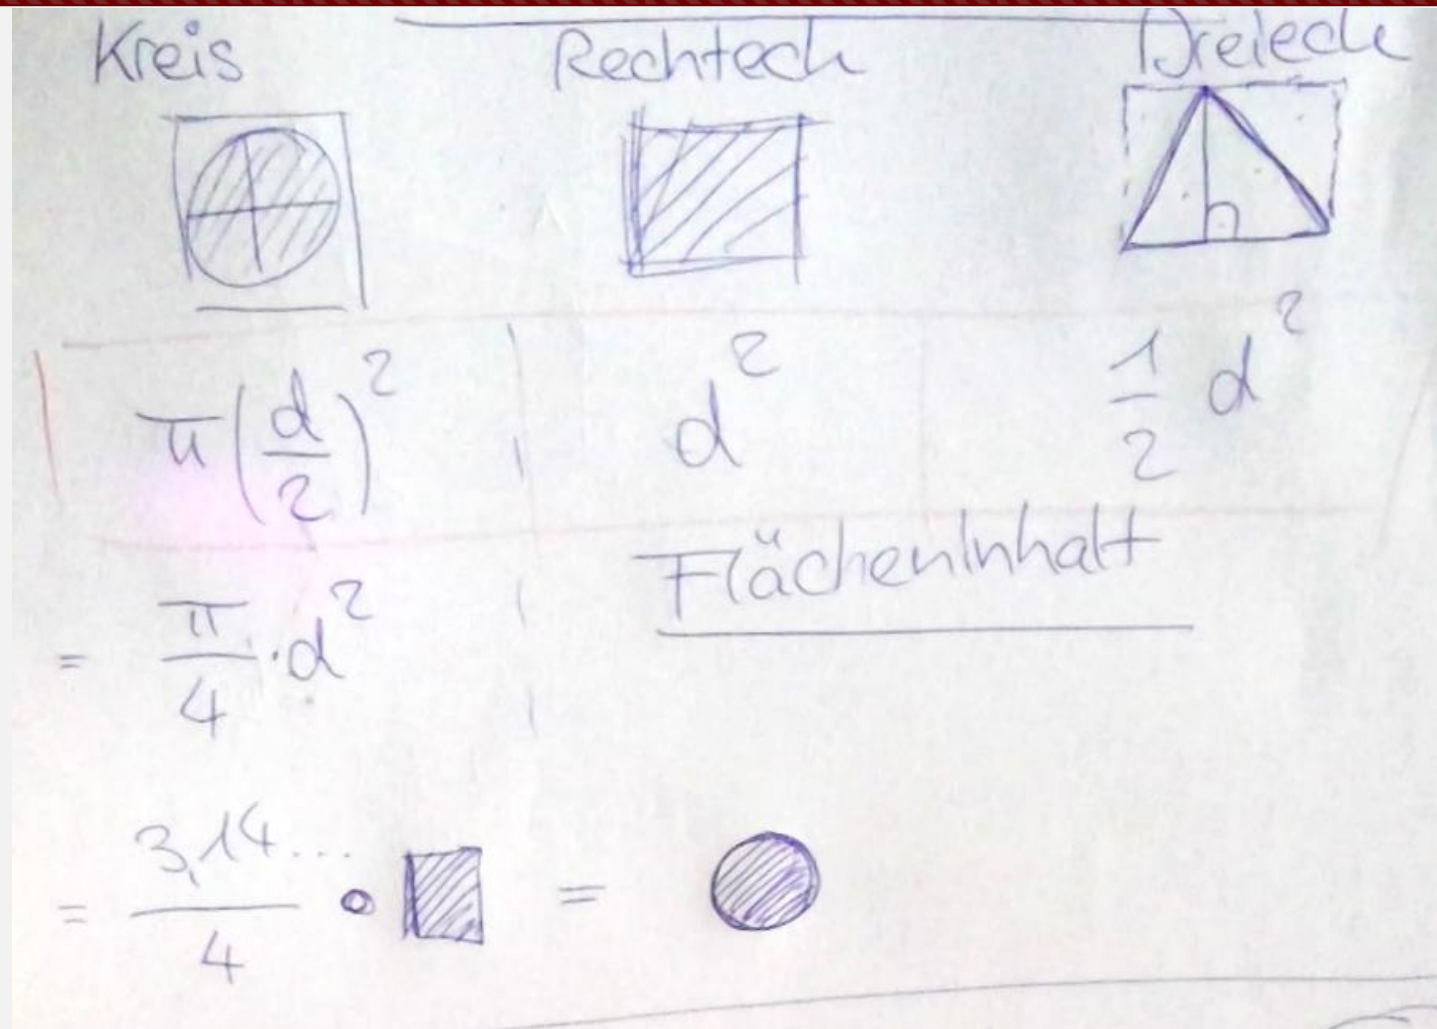 Kreis Rechteck Dreieck
π(d/2)² d² 1/2 d²
Flächeninhalt
= π/4 · d²
= 3,14.../4 · =